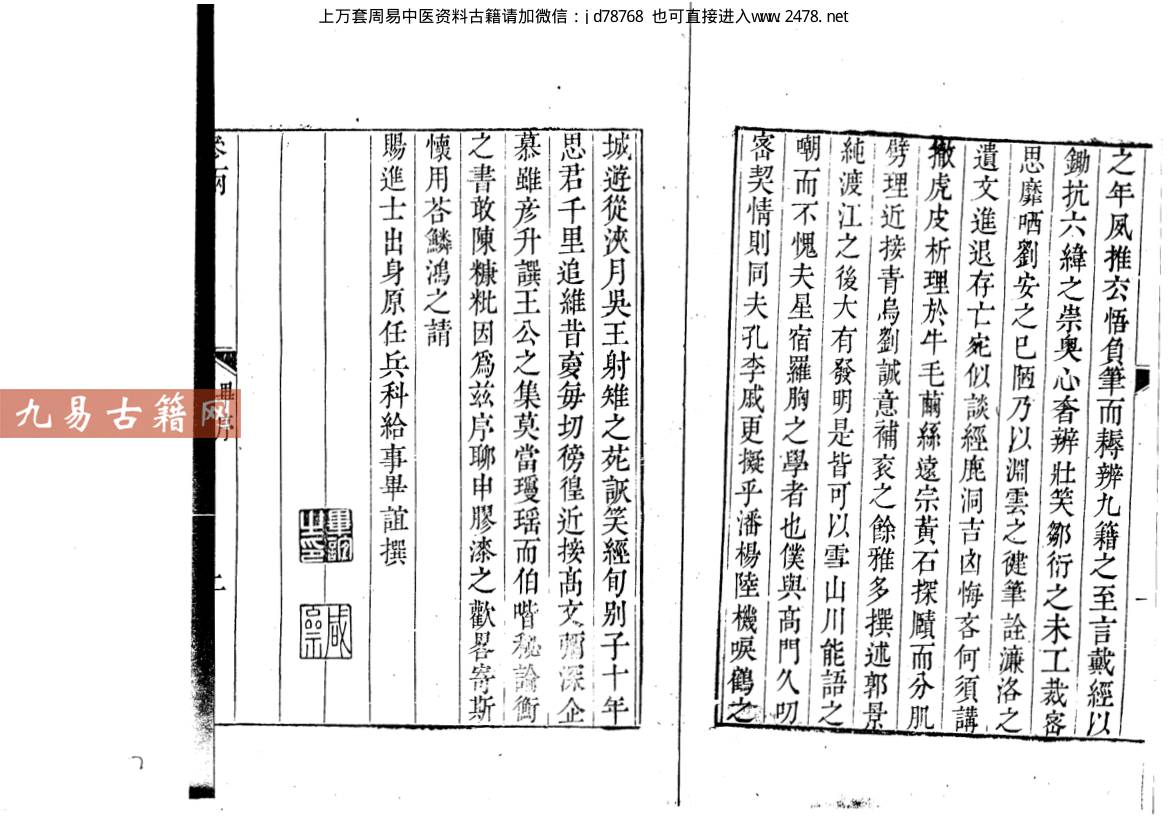 上万套周易中医资料古籍请加微信：jd78768 也可直接进入www.2478.net
之年夙推玄悟負筆而耨辨九籍之至言戴經以
鋤抗六緯之崇奥心香辨壯笑鄒衍之未工裁密
思靡哂劉安之已陋乃以淵雲之健筆詮濂洛之
遺文進退存亡宛似談經鹿洞吉凶悔吝何須講
撤虎皮析理於牛毛繭絲遠宗黄石探賾而分肌
劈理近接青烏劉誠意補衮之餘雅多撰述郭景
純渡江之後大有發明是皆可以雪山川能語之
嘲而不愧夫星宿羅胸之學者也僕與高門久叨
宻契情則同夫孔李戚更擬乎潘楊陸機唳鶴之
城遊從浹月吳王射雉之苑訢笑經旬别子十年
思君千里追維昔夐毎切徬徨近接髙文彌深企
慕雖彦升譔王公之集莫當璦瑶而伯喈秘論衡
之書敢陳糠粃因爲兹序聊申膠漆之歡畧寄斯
懷用荅鱗鴻之請
賜進士出身原任兵科給事畢誼撰
畢誼之印
九易古籍网